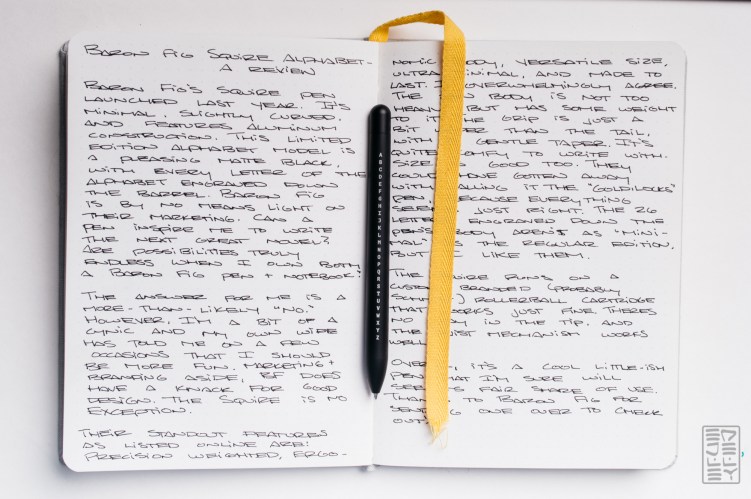 BARON FIG SQUIRE ALPHABET -
A REVIEW
BARON FIG'S SQUIRE PEN
LAUNCHED LAST YEAR. IT'S
MINIMAL, SLIGHTLY CURVED,
AND FEATURES ALUMINUM
CONSTRUCTION. THIS LIMITED
EDITION ALPHABET MODEL IS
A PLEASING MATTE BLACK,
WITH EVERY LETTER OF THE
ALPHABET ENGRAVED DOWN
THE BARREL. BARON FIG
IS BY NO MEANS LIGHT ON
THEIR MARKETING. CAN A
PEN INSPIRE ME TO WRITE
THE NEXT GREAT NOVEL?
ARE POSSIBILITIES TRULY
ENDLESS WHEN I OWN BOTH
A BARON FIG PEN + NOTEBOOK?
THE ANSWER FOR ME IS A
MORE-THAN-LIKELY "NO."
HOWEVER, I'M A BIT OF A
CYNIC AND MY OWN WIFE
HAS TOLD ME ON A FEW
OCCASIONS THAT I SHOULD
BE MORE FUN. MARKETING +
BRANDING ASIDE, BF DOES
HAVE A KNACK FOR GOOD
DESIGN. THE SQUIRE IS NO
EXCEPTION.
THEIR STANDOUT FEATURES
AS LISTED ONLINE ARE:
PRECISION WEIGHTED, ERGO-
ABCDEFGHIJKLMNOPQRSTUVWXYZ
NOMIC BODY, VERSATILE SIZE,
ULTRA MINIMAL, AND MADE TO
LAST. I OVERWHELMINGLY AGREE.
THE BODY IS NOT TOO
HEAVY BUT HAS SOME WEIGHT
TO IT. THE GRIP IS JUST A
BIT WIDER THAN THE TAIL,
WITH A GENTLE TAPER. IT'S
QUITE COMFY TO WRITE WITH.
SIZE IS GOOD TOO. THEY
COULD HAVE GOTTEN AWAY
WITH CALLING IT THE "GOLDILOCKS"
PEN, BECAUSE EVERYTHING
SEEMS JUST RIGHT. THE 26
LETTERS ENGRAVED DOWN THE
PEN'S BODY AREN'T AS "MINI-
MAL" AS THE REGULAR EDITION,
BUT I LIKE THEM.
THE SQUIRE RUNS ON A
CUSTOM BRANDED (PROBABLY
SCHMIDT) ROLLERBALL CARTRIDGE
THAT WORKS JUST FINE. THERE'S
NO IN THE TIP, AND
THE TWIST MECHANISM WORKS
WELL.
OVERALL, IT'S A COOL LITTLE-ISH
PEN THAT I'M SURE WILL
SEE ITS FAIR SHARE OF USE.
THANKS TO BARON FIG FOR
SENDING ONE OVER TO CHECK
OUT!